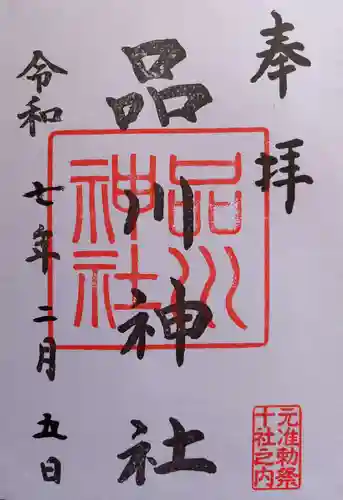 奉拝
品川神社
品川神社
令和七年二月五日
元准勅祭
十社之内